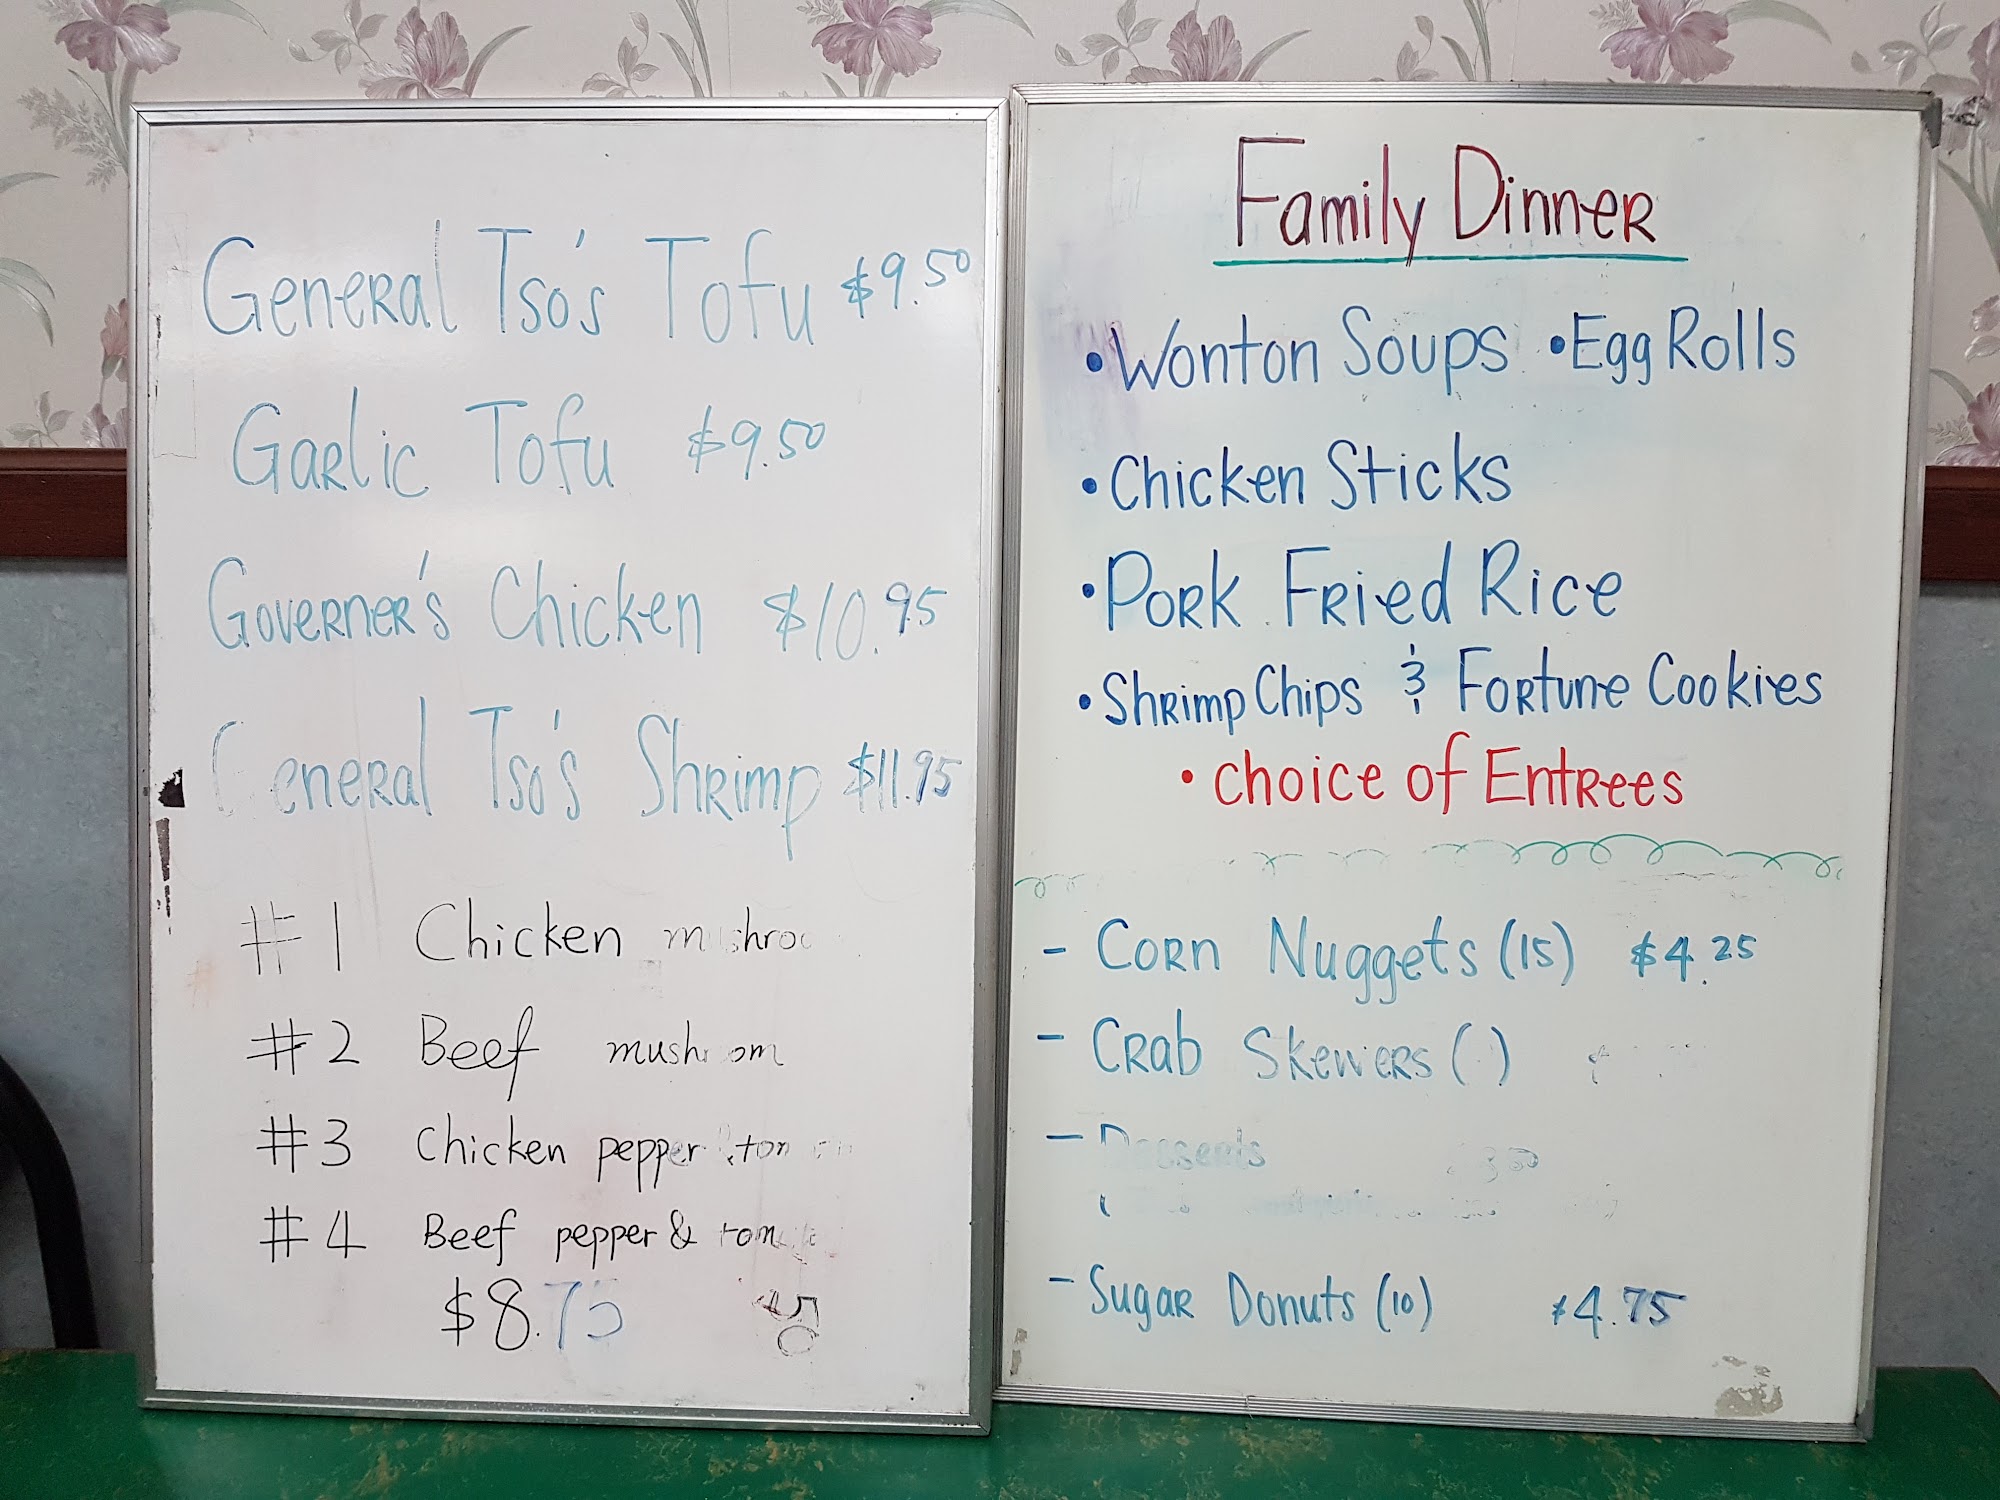 General Tso's Tofu $9.50
Garlic Tofu $9.50
Governer's Chicken $10.95
General Tso's Shrimp $11.95
#1 Chicken
#2 Beef mushroom
#3 Chicken pepper
#4 Beef pepper &
$8.75
Family Dinner
• Wonton Soups • Egg Rolls
• Chicken Sticks
• Pork Fried Rice
• Shrimp Chips & Fortune Cookies
• Choice of Entrees
- Corn Nuggets (15) $4.25
- Crab Skewers
- Desserts
- Sugar Donuts (10) $4.75